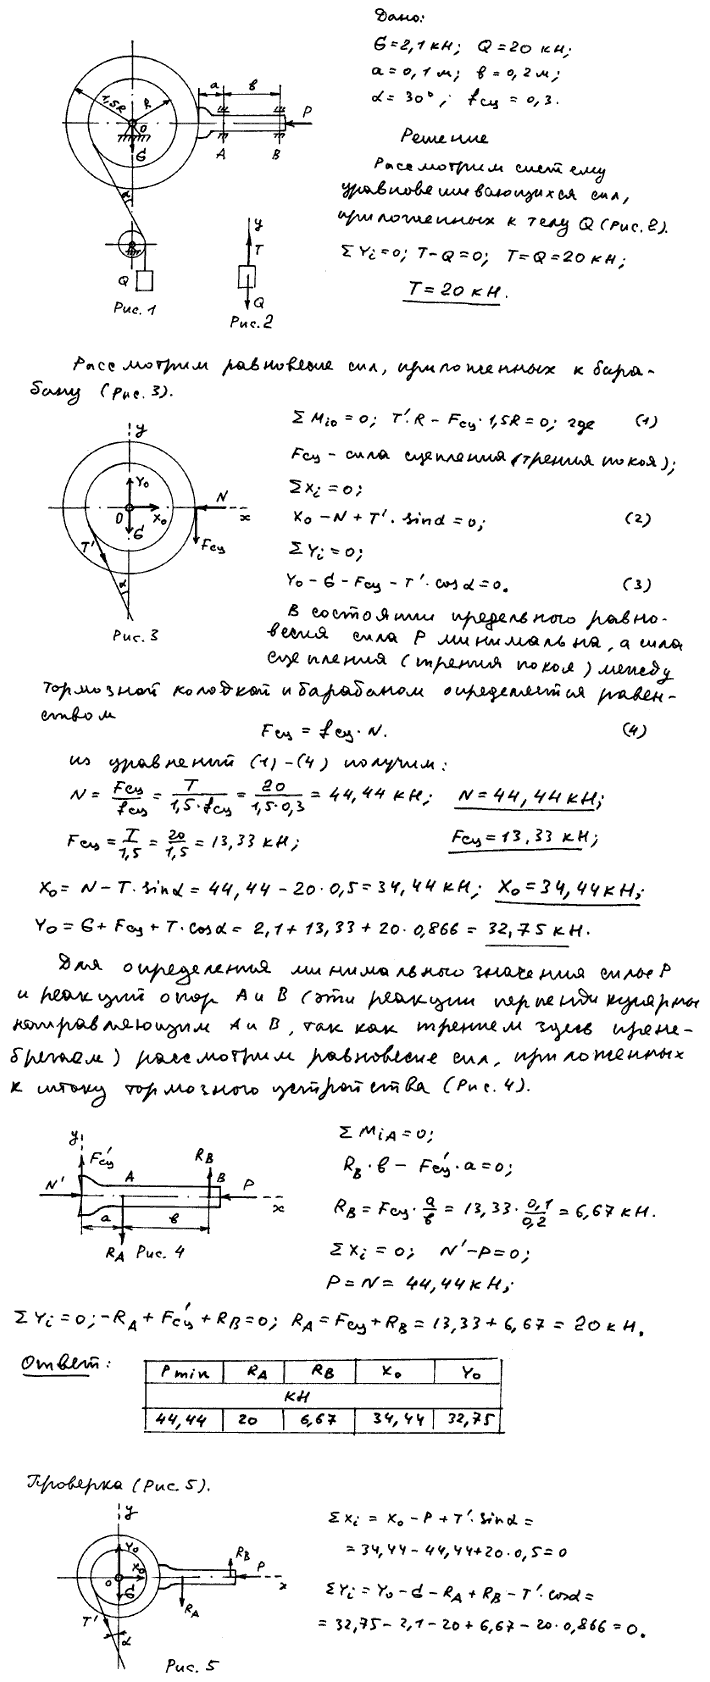 Дано:
G=2,1 кН; Q=20 кН;
a=0,1 м; в=0,2 м;
α=30°; fсц=0,3.
1,5R
R
O
G
a
в
P
A
B
α
Q
Рис. 1
y
T
Q
Рис. 2
Решение
Рассмотрим систему
уравновешивающихся сил,
приложенных к телу Q (Рис. 2).
ΣYi=0; T-Q=0; T=Q=20 кН;
T=20 кН.
Рассмотрим равновесие сил, приложенных к бара-
бану (Рис. 3).
ΣMio=0; T'·R - Fсц·1,5R=0; где (1)
Fсц - сила сцепления (трения покоя);
ΣXi=0;
Xo - N + T'·sinα=0; (2)
ΣYi=0;
Yo - G - Fсц - T'·cosα=0. (3)
y
Yo
N
O
Xo
x
G
T'
Fсц
α
Рис. 3
В состоянии предельного равно-
весия сила P минимальна, а сила
сцепления (трения покоя) между
тормозной колодкой и барабаном определяется равен-
ством
Fсц = fсц·N. (4)
из уравнений (1)-(4) получим:
N = Fсц/fсц = T/1,5·fсц = 20/1,5·0,3 = 44,44 кН; N=44,44 кН;
Fсц = T/1,5 = 20/1,5 = 13,33 кН; Fсц=13,33 кН;
Xo = N - T·sinα = 44,44 - 20·0,5 = 34,44 кН; Xo=34,44 кН;
Yo = G + Fсц + T·cosα = 2,1 + 13,33 + 20·0,866 = 32,75 кН.
Для определения минимального значения силы P
и реакций опор A и B (эти реакции перпендикулярны
направляющим A и B, так как трением здесь прене-
брегаем) рассмотрим равновесие сил, приложенных
к штоку тормозного устройства (Рис. 4).
y
Fсц'
RB
N'
A
B
P
x
a
в
RA
Рис. 4
ΣMiA=0;
RB·в - Fсц'·a=0;
RB = Fсц·a/в = 13,33·0,1/0,2 = 6,67 кН.
ΣXi=0; N'-P=0;
P=N=44,44 кН;
ΣYi=0; -RA + Fсц' + RB=0; RA = Fсц + RB = 13,33 + 6,67 = 20 кН.
Ответ:
Pmin RA RB Xo Yo
кН
44,44 20 6,67 34,44 32,75
Проверка (Рис. 5).
y
Yo
Xo
O
G
RB
P
x
RA
T'
α
Рис. 5
ΣXi = Xo - P + T'·sinα =
= 34,44 - 44,44 + 20·0,5 = 0
ΣYi = Yo - G - RA + RB - T'·cosα =
= 32,75 - 2,1 - 20 + 6,67 - 20·0,866 = 0.